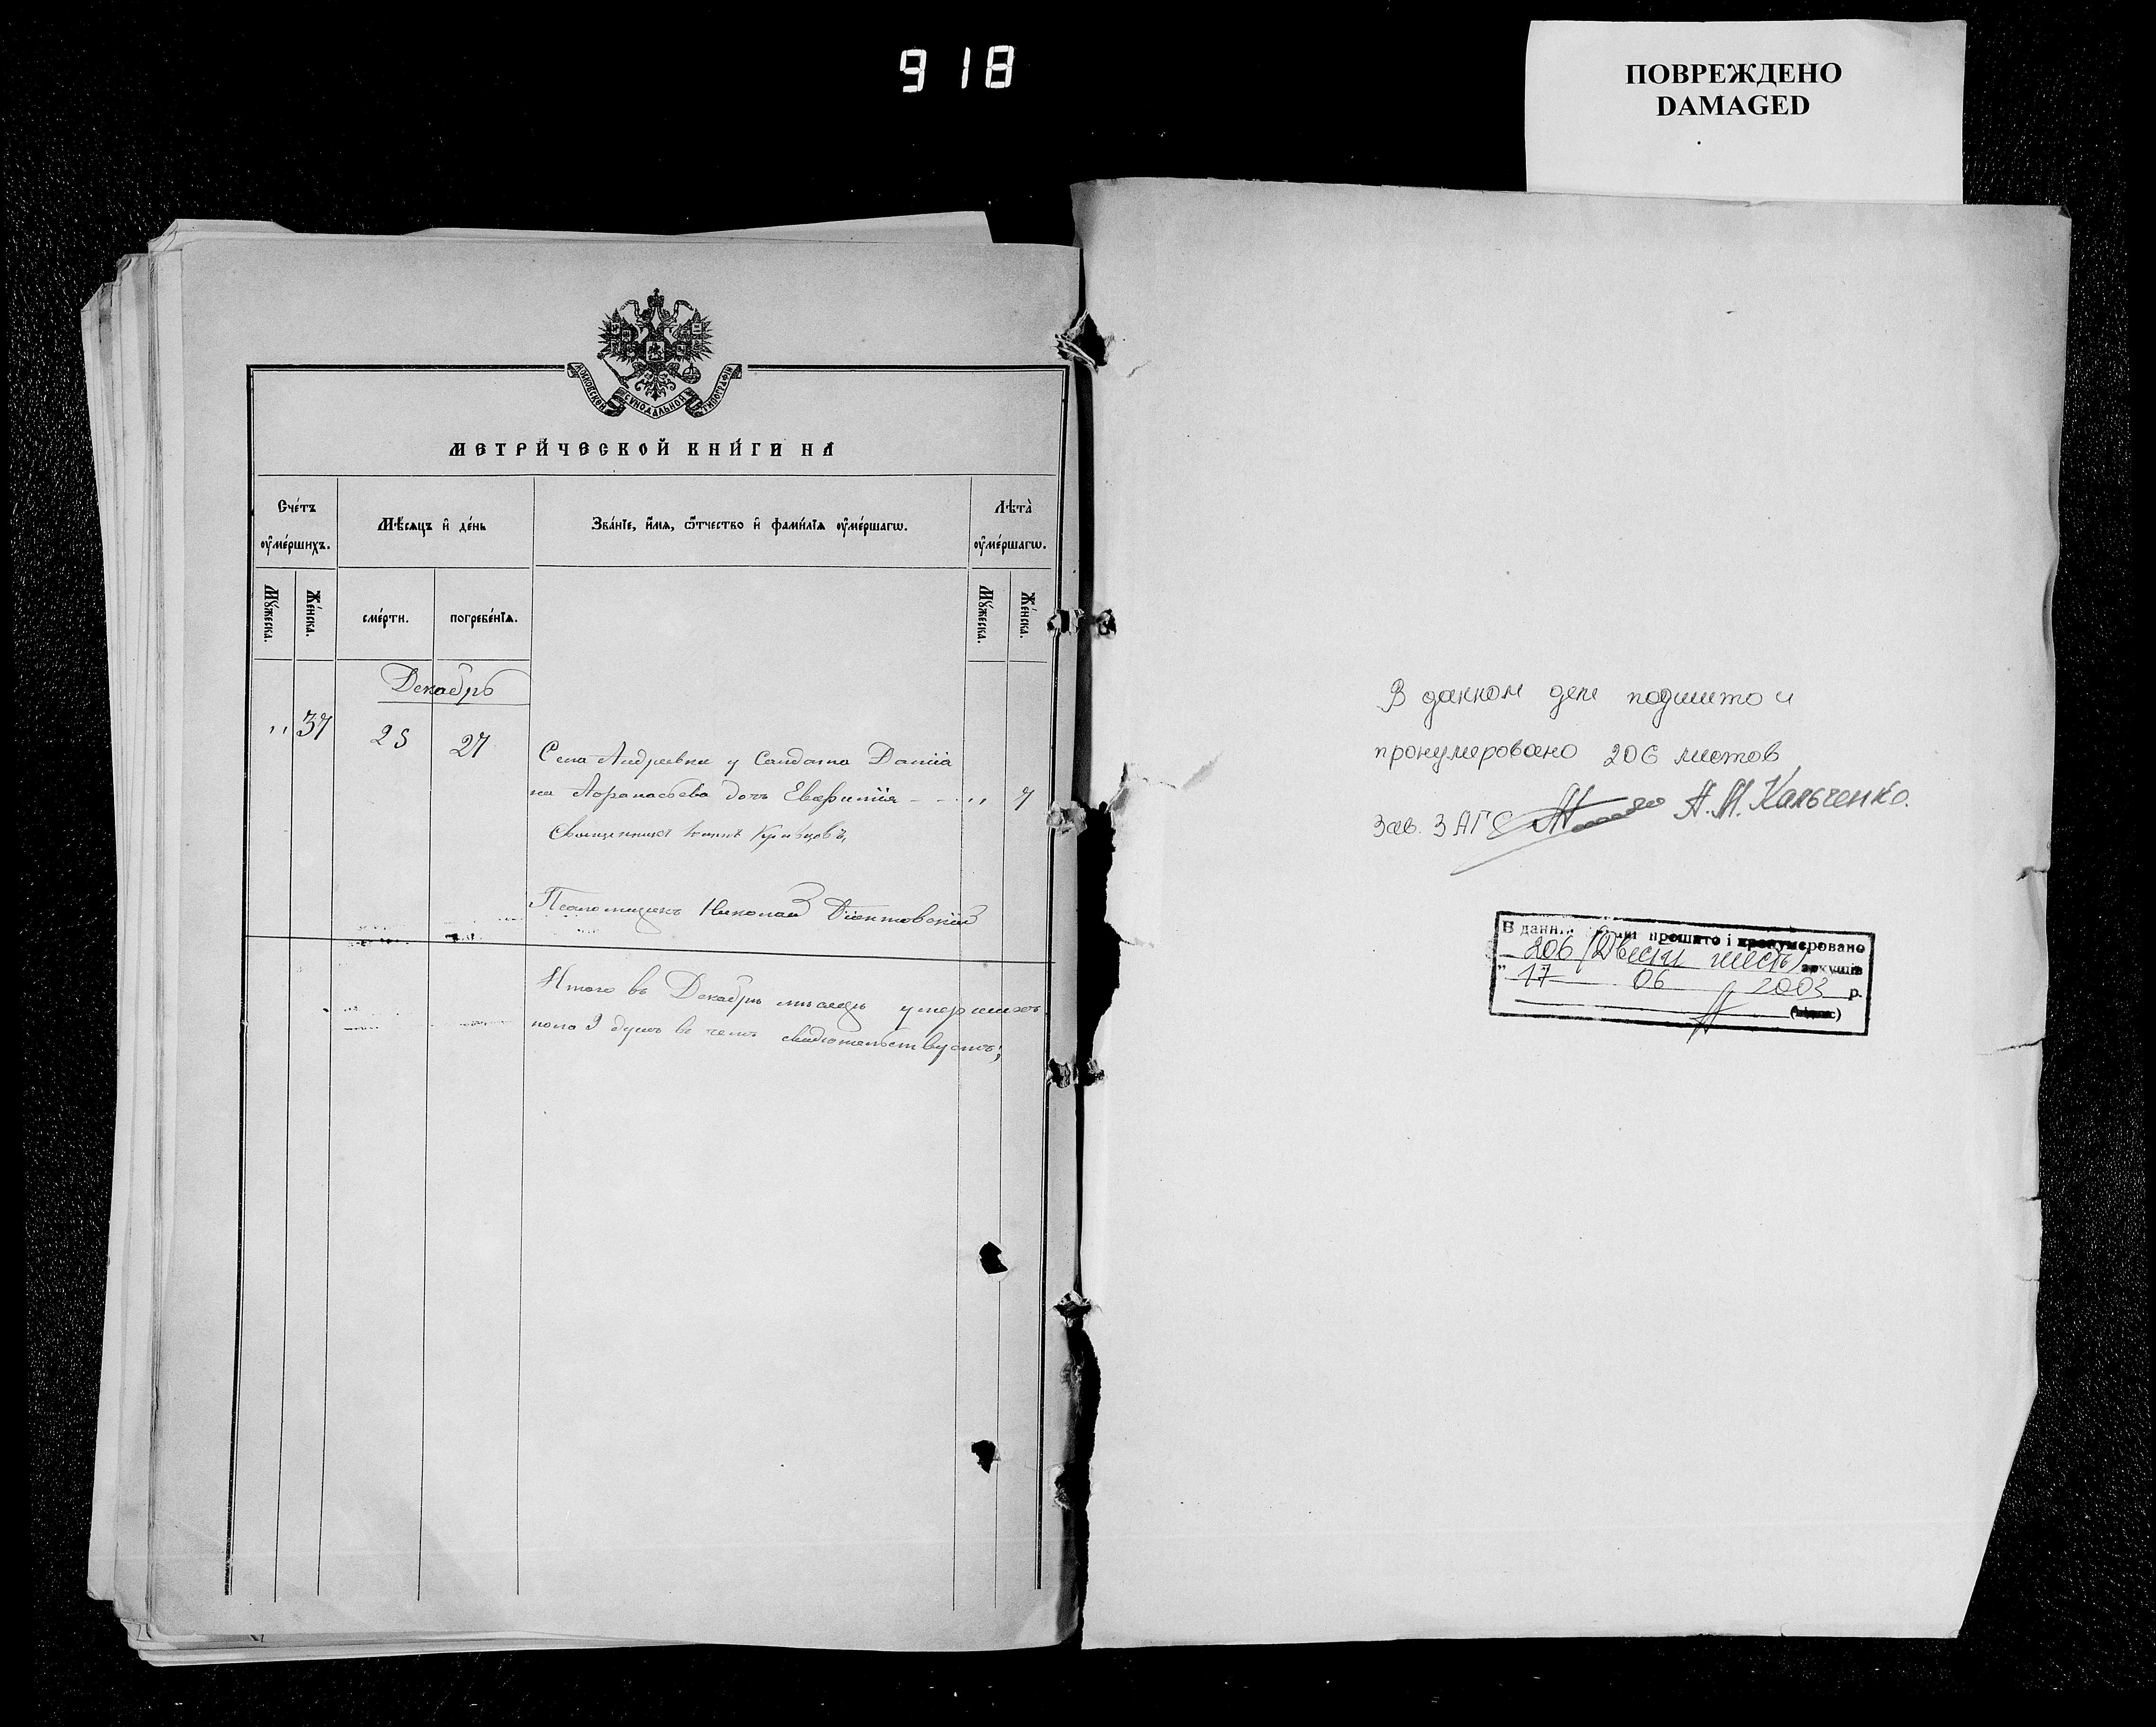 918
ПОВРЕЖДЕНО
DAMAGED
МОСКОВСКОЙ СѴНОДАЛЬНОЙ ТИПОГРАФІИ
МЕТРИ́ЧЕСКОЙ КНИ́ГИ НА
Сче́тъ ᲂу҆ме́ршихъ.
Мѣ́сяцъ и҆ де́нь
Зва́нїе, и҆́мѧ, ѻ҆́тчество и҆ фами́лїѧ ᲂу҆ме́ршагѡ.
Лѣта̀ ᲂу҆ме́ршагѡ.
Мꙋ́жеска.
Же́нска.
сме́рти.
погребе́нїѧ.
Мꙋ́жеска.
Же́нска.
Декабрь
,, 37 25 27
Села Андреевки у Солдата Данiи
ла Афранасьева дочь Евфимiя - - ,, 7
Священникъ Iоаннъ Кривцовъ,
Псаломщикъ Николай
Итого въ Декабрѣ мѣсяцѣ умершихъ
пола 9 душъ въ чемъ свидѣтельствуютъ;
В данном деле подшито и
пронумеровано 206 листов
Зав. ЗАГС А.М. Кальченко.
В даній прошито і пронумеровано
206 (Двести шесть) аркушів
" 17 06 2003 р.
(підпис)